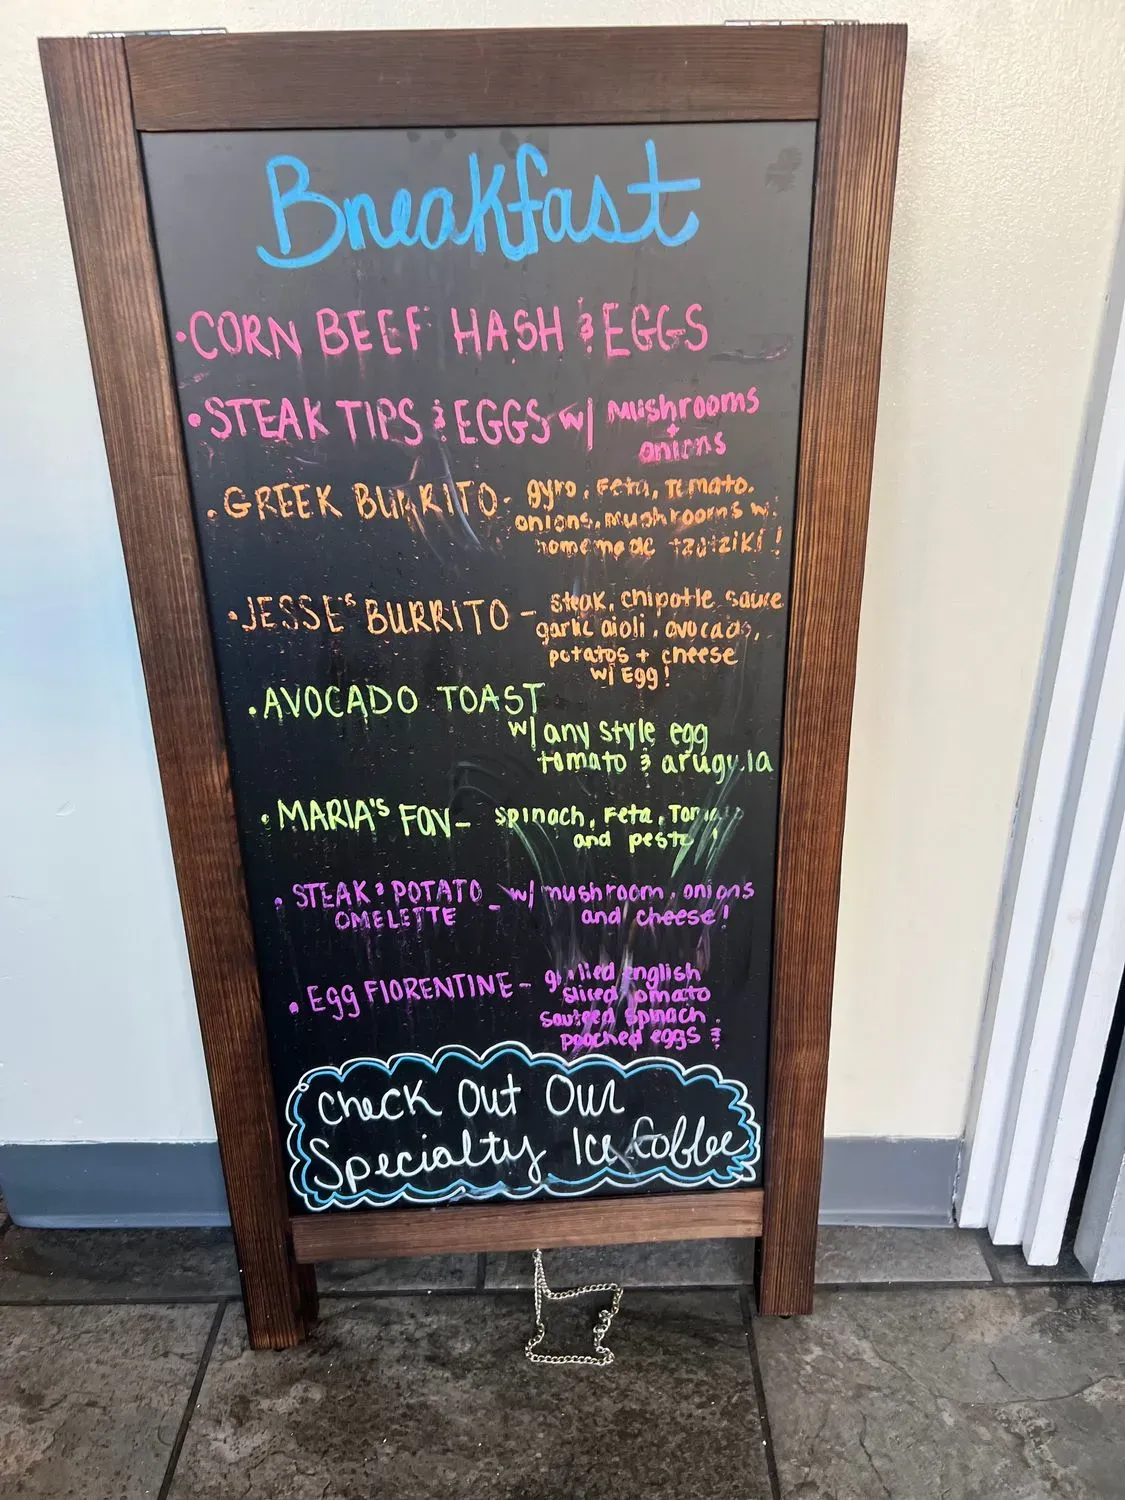 Breakfast
• CORN BEEF HASH & EGGS
• STEAK TIPS & EGGS w/ Mushrooms
+
onions
• GREEK BURRITO - gyro, Feta, Tomato,
onions, mushrooms w.
homemade tzatziki!
• JESSE'S BURRITO - steak, chipotle sauce
garlic aioli, avocado,
potatos + cheese
w/ Egg!
• AVOCADO TOAST
w/ any style egg
tomato & arugula
• MARIA'S FAV - spinach, Feta,
and pesto!
• STEAK & POTATO - w/ mushroom, onions
OMELETTE and cheese!
• EGG FlORENTINE - grilled english
sliced tomato
sauteed spinach
poached eggs &
Check Out Our
Specialty Ice Coffee